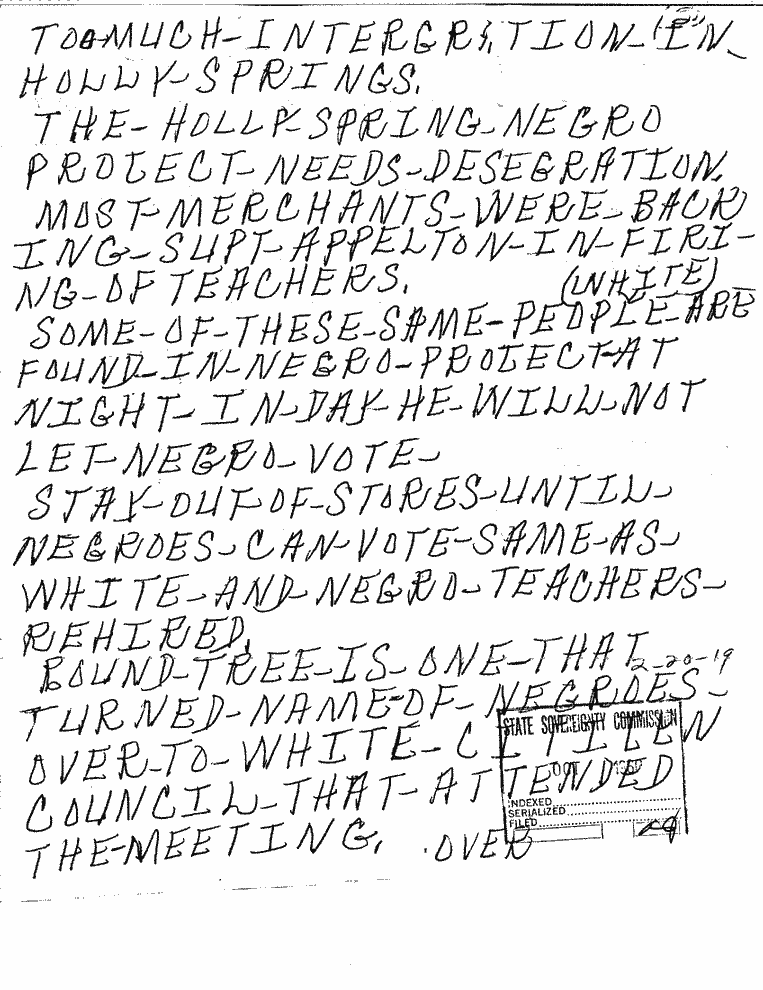 TOO-MUCH-INTERGRATION-IN-
HOLLY-SPRINGS.
THE-HOLLY-SPRING-NEGRO
PROTECT-NEEDS-DESEGRATION.
MOST-MERCHANTS-WERE-BACK
ING-SUPT-APPELTON-IN-FIRI-
NG-OF TEACHERS. (WHITE)
SOME-OF-THESE-SAME-PEOPLE-ARE
FOUND-IN-NEGRO-PROTECT-AT
NIGHT-IN-DAY-HE-WILL-NOT
LET-NEGRO-VOTE-
STAY-OUT-OF-STORES-UNTIL-
NEGROES-CAN-VOTE-SAME-AS-
WHITE-AND-NEGRO-TEACHERS-
REHIRED.
ROUND-TREE-IS-ONE-THAT 2-20-19
TURNED-NAME-OF-NEGROES-
STATE SOVEREIGNTY COMMISSION
OVER-TO-WHITE-CITIZEN
COUNCIL-THAT-ATTENDED
OCT
INDEXED
SERIALIZED
FILED
THE-MEETING. OVER